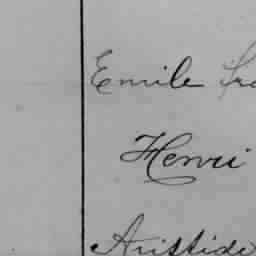 Emile
Henri
Aristide